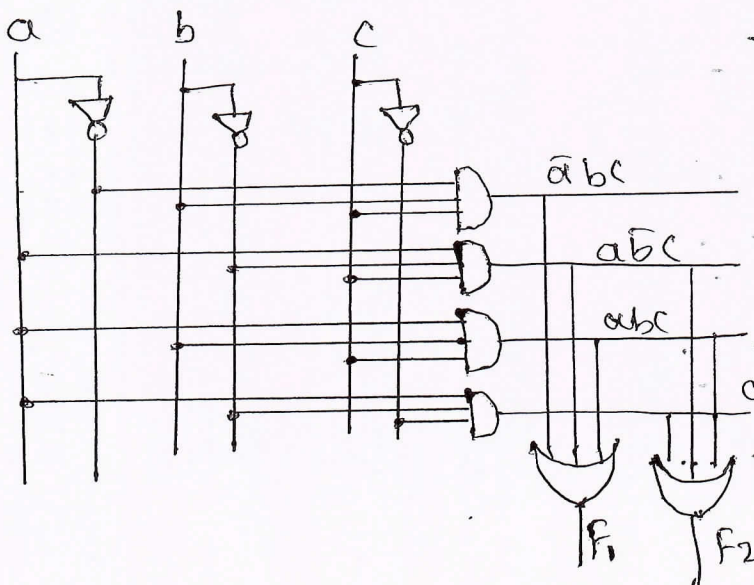 a b c
ā b c
a b̄ c
abc
F₁ F₂